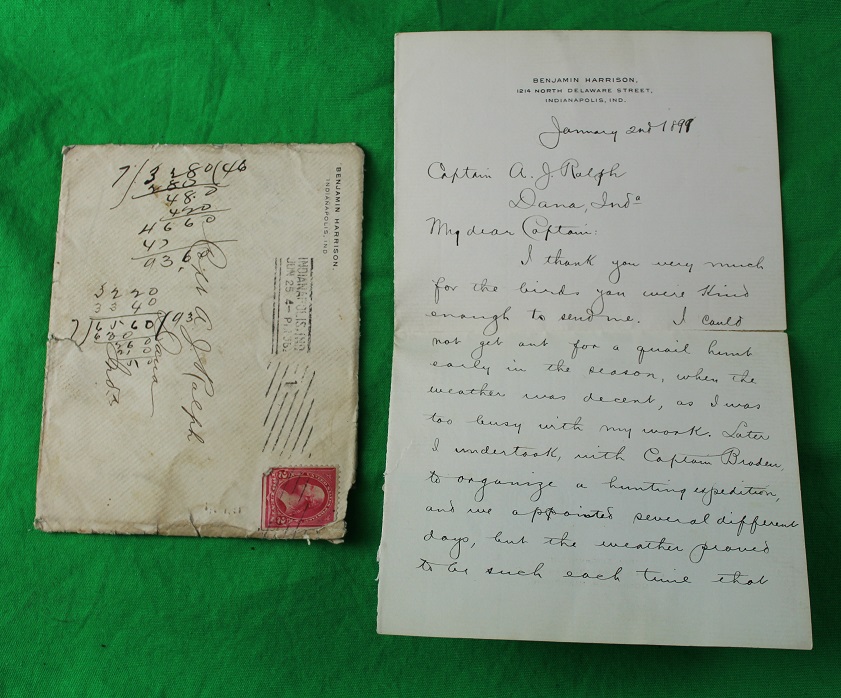 BENJAMIN HARRISON,
1214 NORTH DELAWARE STREET,
INDIANAPOLIS, IND.
January 2nd 1899
Captain A. J. Ralph
Dana, Inda
My dear Captain:
I thank you very much
for the birds you were kind
enough to send me. I could
not get out for a quail hunt
early in the season, when the
weather was decent, as I was
too busy with my work. Later
I undertook, with Captain
to organize a hunting expedition,
and we appointed several different
days, but the weather proved
to be such each time that
BENJAMIN HARRISON,
INDIANAPOLIS, IND.
INDIANAPOLIS, IND.
JUN 25 4-P
A J Ralph
Dana
Inda
7)3280(46
280
480
420
466
3220
3340
7)6560(93